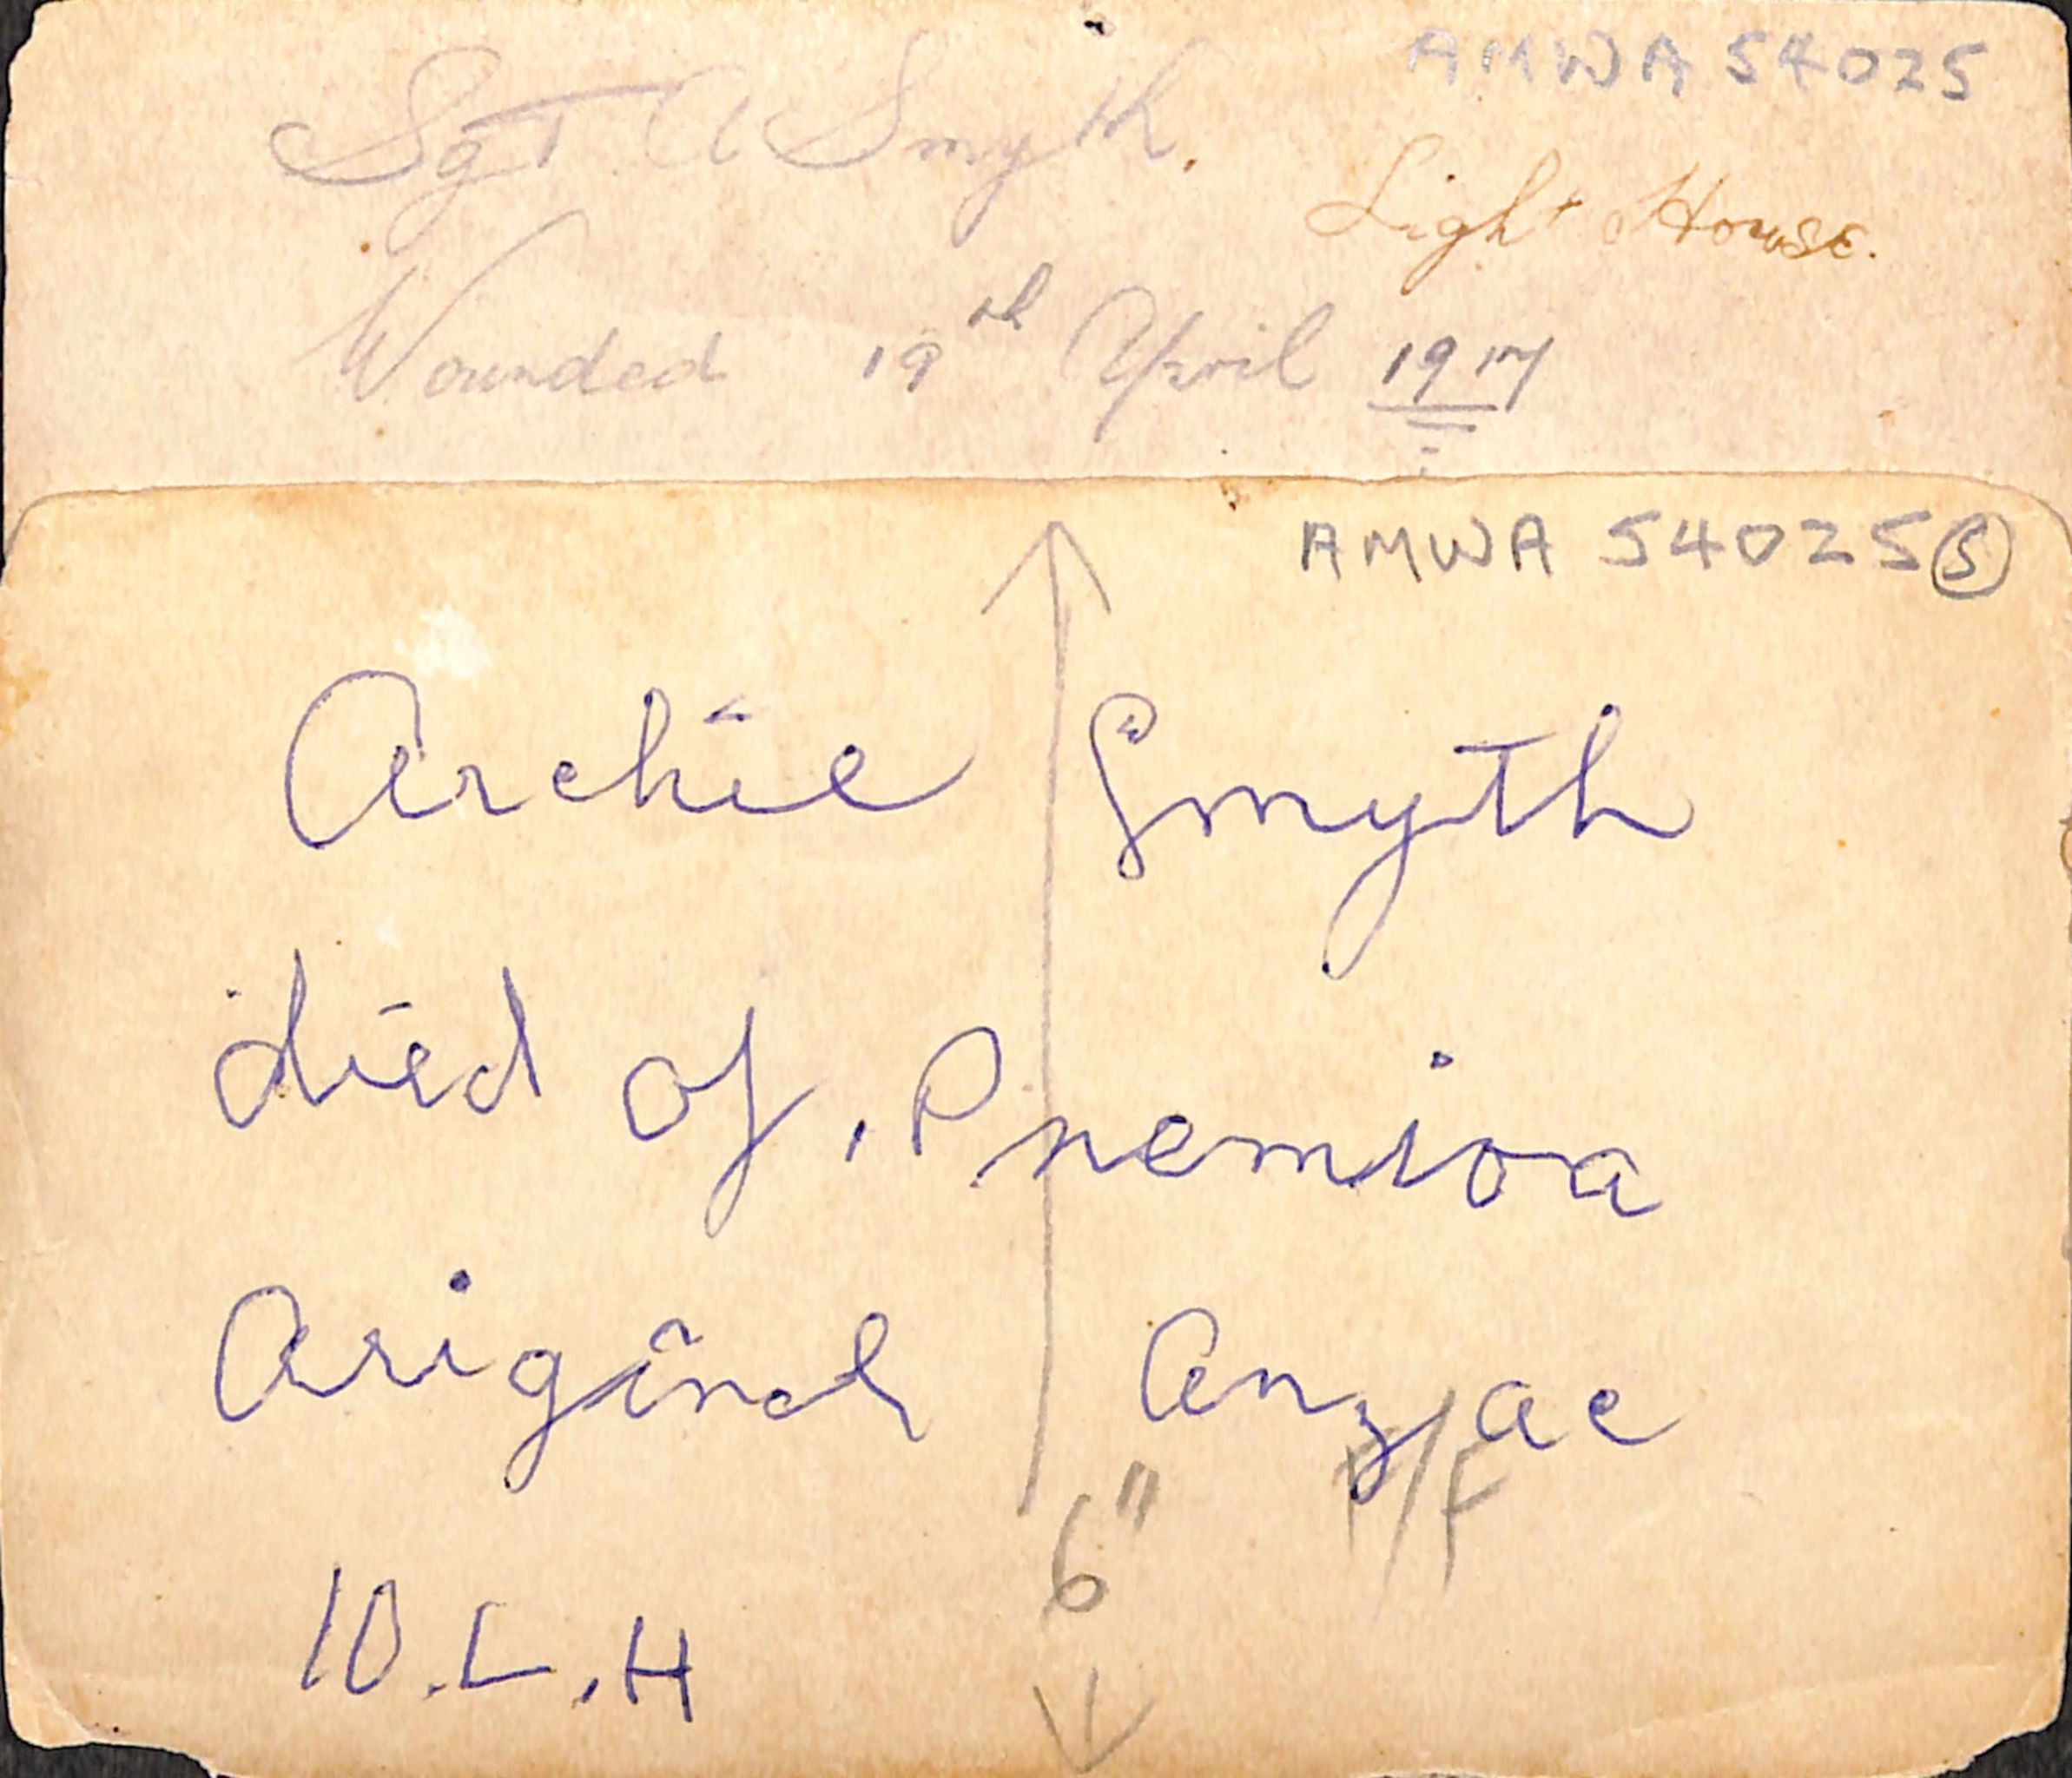 AMWA 54025
Sgt A Smyth.
Light House.
Wounded 19th April 1917
AMWA 54025 S
Archie Smyth
died of, Pnemioa
Ariginel Anzac
6" F/F
10.L.H